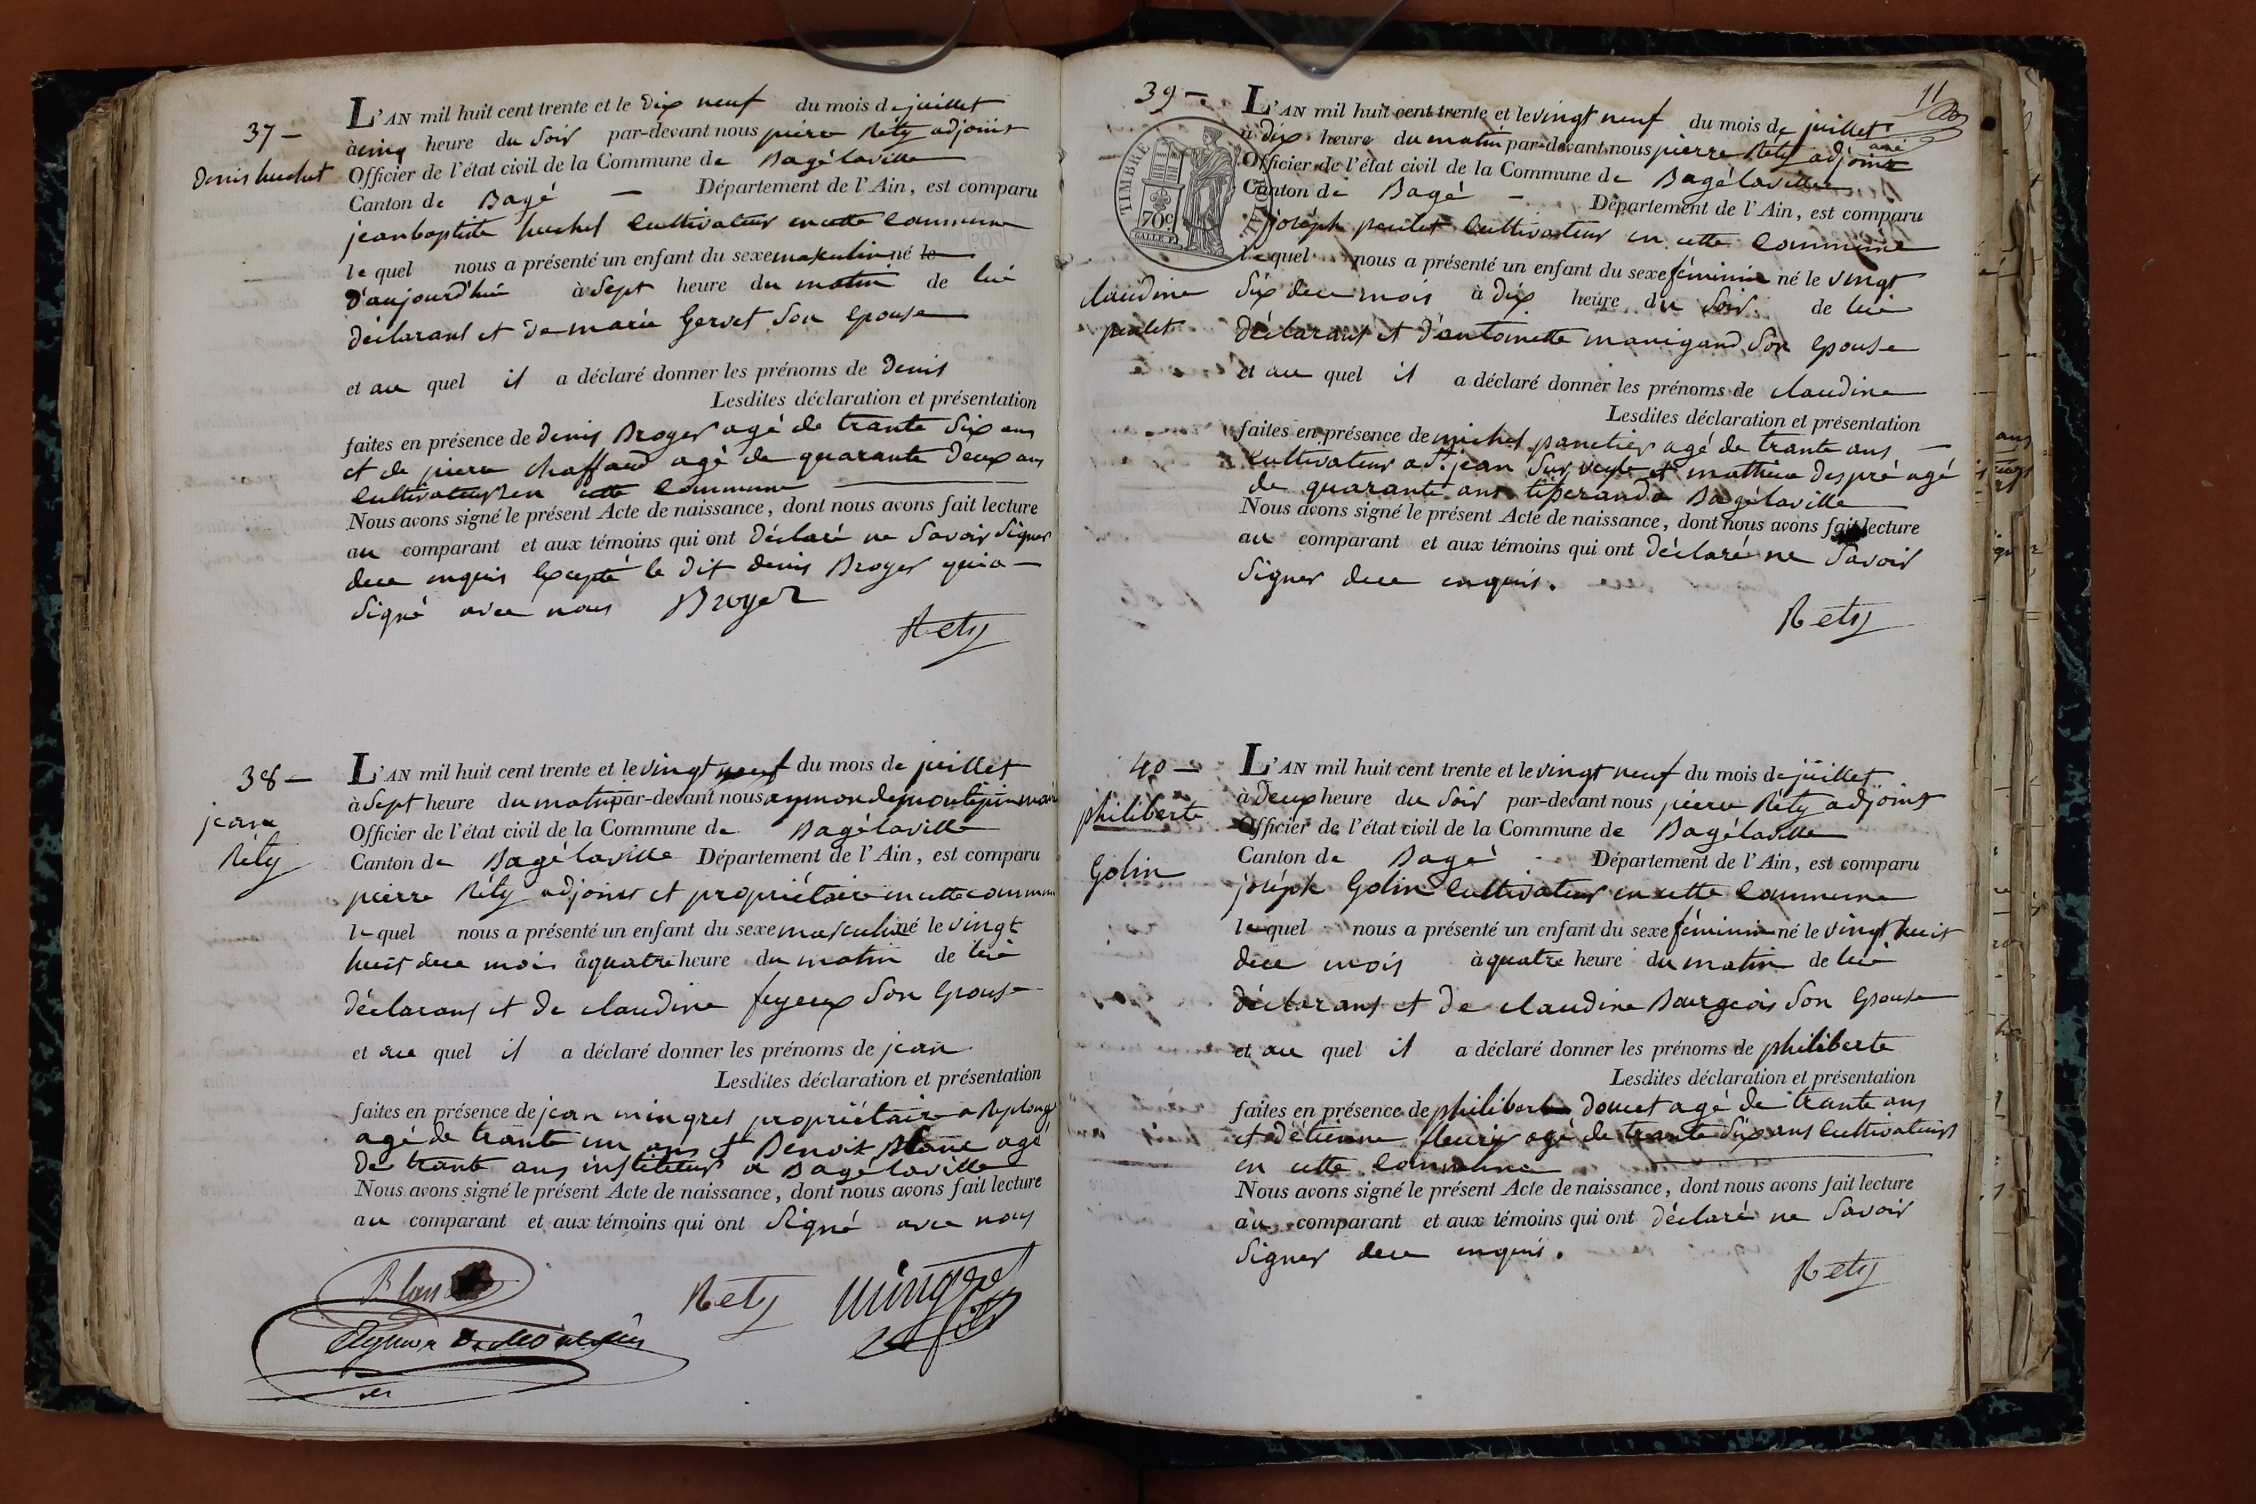 37 –
Denis huchet
L'AN mil huit cent trente et le Dix neuf du mois de juillet
à cinq heure du Soir par-devant nous pierre Réty adjoint
Officier de l'état civil de la Commune de Bagélaville
Canton de Bagé – Département de l'Ain, est comparu
jean baptiste huchet Cultivateur en cette Commune
le quel nous a présenté un enfant du sexe masculin né le
D'aujourd'hui à Sept heure du matin de lui
déclarant et de marie Gervet Son Epouse
et au quel il a déclaré donner les prénoms de Denis
Lesdites déclaration et présentation
faites en présence de Denis Broyer agé de trante Six ans
et de pierre Chaffaud agé de quarante Deux ans
Cultivateurs en cette Commune
Nous avons signé le présent Acte de naissance, dont nous avons fait lecture
au comparant et aux témoins qui ont Déclaré ne Savoir Signer
dece enquis Excepté le Dit Denis Broyer qui a –
Signé avec nous Broyer
Rety
38 –
jean
Réty
L'AN mil huit cent trente et le vingt neuf du mois de juillet
à Sept heure du matin par-devant nous aymon de montépin maire
Officier de l'état civil de la Commune de Bagélaville
Canton de Bagélaville Département de l'Ain, est comparu
pierre Réty adjoint et propriétaire en cette commune
le quel nous a présenté un enfant du sexe masculin né le vingt
huit dece mois à quatre heure du matin de lui
déclarant et de claudine feyeux Son Epouse
et au quel il a déclaré donner les prénoms de jean
Lesdites déclaration et présentation
faites en présence de jean mingret propriétaire a Replonge
agé de trante un ans et Benoit Blanc agé
de trante ans instituteur a Bagélaville
Nous avons signé le présent Acte de naissance, dont nous avons fait lecture
au comparant et aux témoins qui ont Signé avec nous
Rety mingret
fils
Aymon De Montépin
39 –
11
claudine
poulet
TIMBRE
70c
L'AN mil huit cent trente et le vingt neuf du mois de juillet
à dix heure du matin par-devant nous pierre Réty adjoint
Officier de l'état civil de la Commune de Bagélaville
Canton de Bagé – Département de l'Ain, est comparu
joseph poulet Cultivateur en cette Commune
le quel nous a présenté un enfant du sexe féminin né le vingt
Six dece mois à dix heure du Soir de lui
déclarant et d'antoinette manigand Son Epouse
et au quel il a déclaré donner les prénoms de claudine
Lesdites déclaration et présentation
faites en présence de michel panetier agé de trante ans –
Cultivateur a St jean Sur veyle et mathieu Despré agé
de quarante ans tisserand a Bagélaville
Nous avons signé le présent Acte de naissance, dont nous avons fait lecture
au comparant et aux témoins qui ont Déclaré ne Savoir
Signer dece enquis.
Rety
40 –
philiberte
Golin
L'AN mil huit cent trente et le vingt neuf du mois de juillet
à Deux heure du Soir par-devant nous pierre Réty adjoint
Officier de l'état civil de la Commune de Bagélaville
Canton de Bagé Département de l'Ain, est comparu
joseph Golin Cultivateur en cette Commune
le quel nous a présenté un enfant du sexe féminin né le vingt huit
dece mois à quatre heure du matin de lui
déclarant et de claudine Bourgeois Son Epouse
et au quel il a déclaré donner les prénoms de philiberte
Lesdites déclaration et présentation
faites en présence de philibert Doucet agé de trante ans
et d'étienne fleury agé de trante Six ans Cultivateurs
en cette Commune
Nous avons signé le présent Acte de naissance, dont nous avons fait lecture
au comparant et aux témoins qui ont déclaré ne Savoir
Signer dece enquis.
Rety